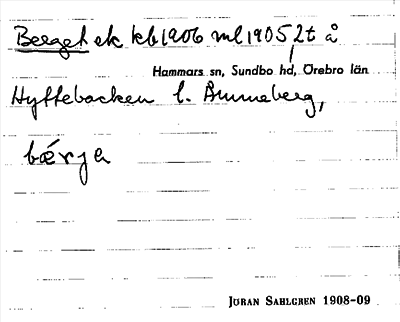 Berget ek kb1906 ml1905 2t å
Hammars sn, Sundbo hd, Örebro län
Hyttebacken l. Ammeberg,
bærja
JÖRAN SAHLGREN 1908-09